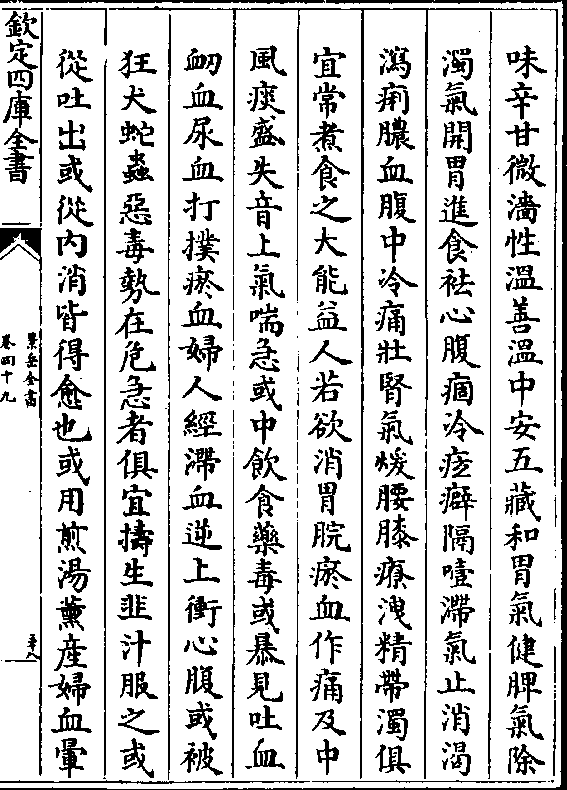 味辛甘微濇性溫善溫中安五藏和胃氣健脾氣除
濁氣開胃進食祛心腹痼冷痃癖隔噎滯氣止消渴
瀉痢膿血腹中冷痛壯腎氣煖腰膝療洩精帶濁俱
宜常煮食之大能益人若欲消胃脘瘀血作痛及中
風痰盛失音上氣喘急或中飲食藥毒或暴見吐血
衂血尿血打撲瘀血婦人經滯血逆上衝心腹或被
狂犬蛇蟲惡毒勢在危急者俱宜擣生韭汁服之或
從吐出或從内消皆得愈也或用煎湯薰產婦血暈
欽定四庫全書
景岳全書
卷四十九
至八